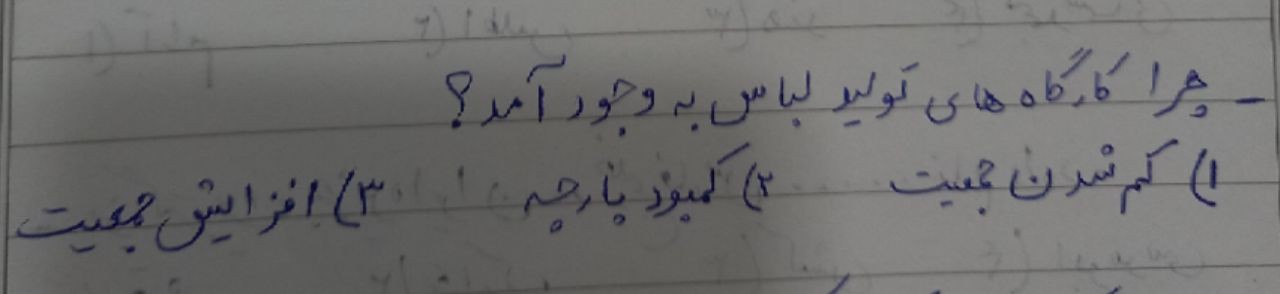 - چرا کارگاه های تولید لباس به وجود آمد؟
۱) کم شدن جمعیت ۲) کمبود پارچه ۳) افزایش جمعیت